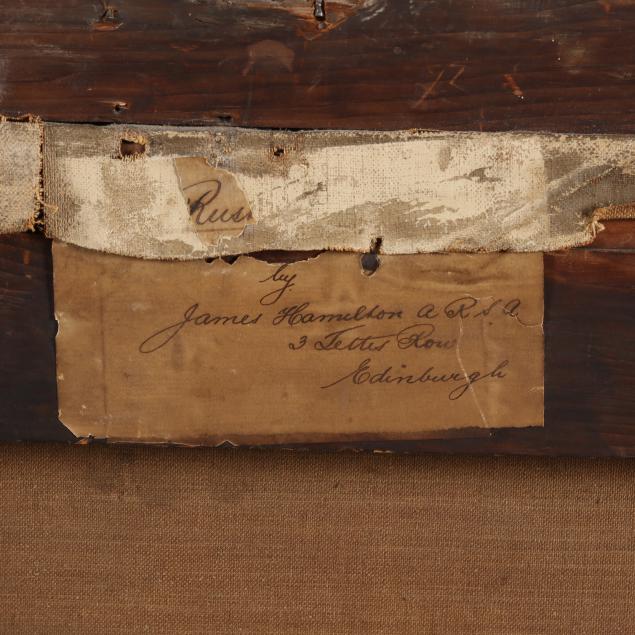 Rus
by
James Hamilton A R S A
3 Fettes Row
Edinburgh